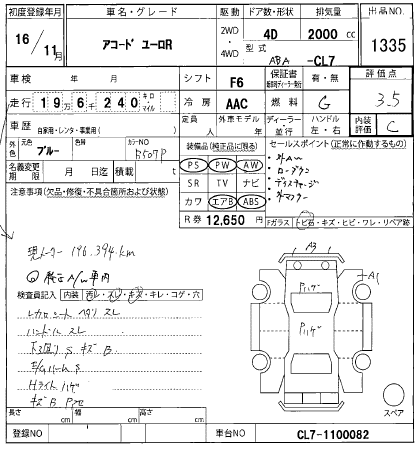 初度登録年月 車名・グレード 駆動 ドア数・形状 排気量 出品NO.
16/11月 アコード ユーロR 2WD・4WD 4D 2000cc 1335
型式 ABA-CL7
車検 年 月 シフト F6 保証書 有・無 評価点
走行 19万6千240キロ・マイル 冷房 AAC 燃料 G 3.5
車歴 自家用・レンタ・事業用( ) 定員 人 外車モデル年式 年 ディーラー・並行 ハンドル 左・右 内装評価 C
外色 元色 ブルー 色替 カラーNO B507P
装備品(純正品に限る) セールスポイント(正常に動作するもの)
PS PW AW 外AW
名義変更期限 月 日 積載 t
SR TV ナビ ローダウン
注意事項(欠品・修復・不具合箇所および状態)
カワ エアB ABS
R券 12,650円
Fガラス トビ石・キズ・ヒビ・ワレ・リペア跡
現メーター 196,394km
純正A/W車内
検査員記入 内装 汚レ・スレ・キズ・キレ・コゲ・穴
ハンドル スレ
下廻り S キズ B
Hライトハゲ
A3
A1
Pハゲ
Pハゲ
スペア
長さ cm 幅 cm 高さ cm
登録NO 車台NO CL7-1100082